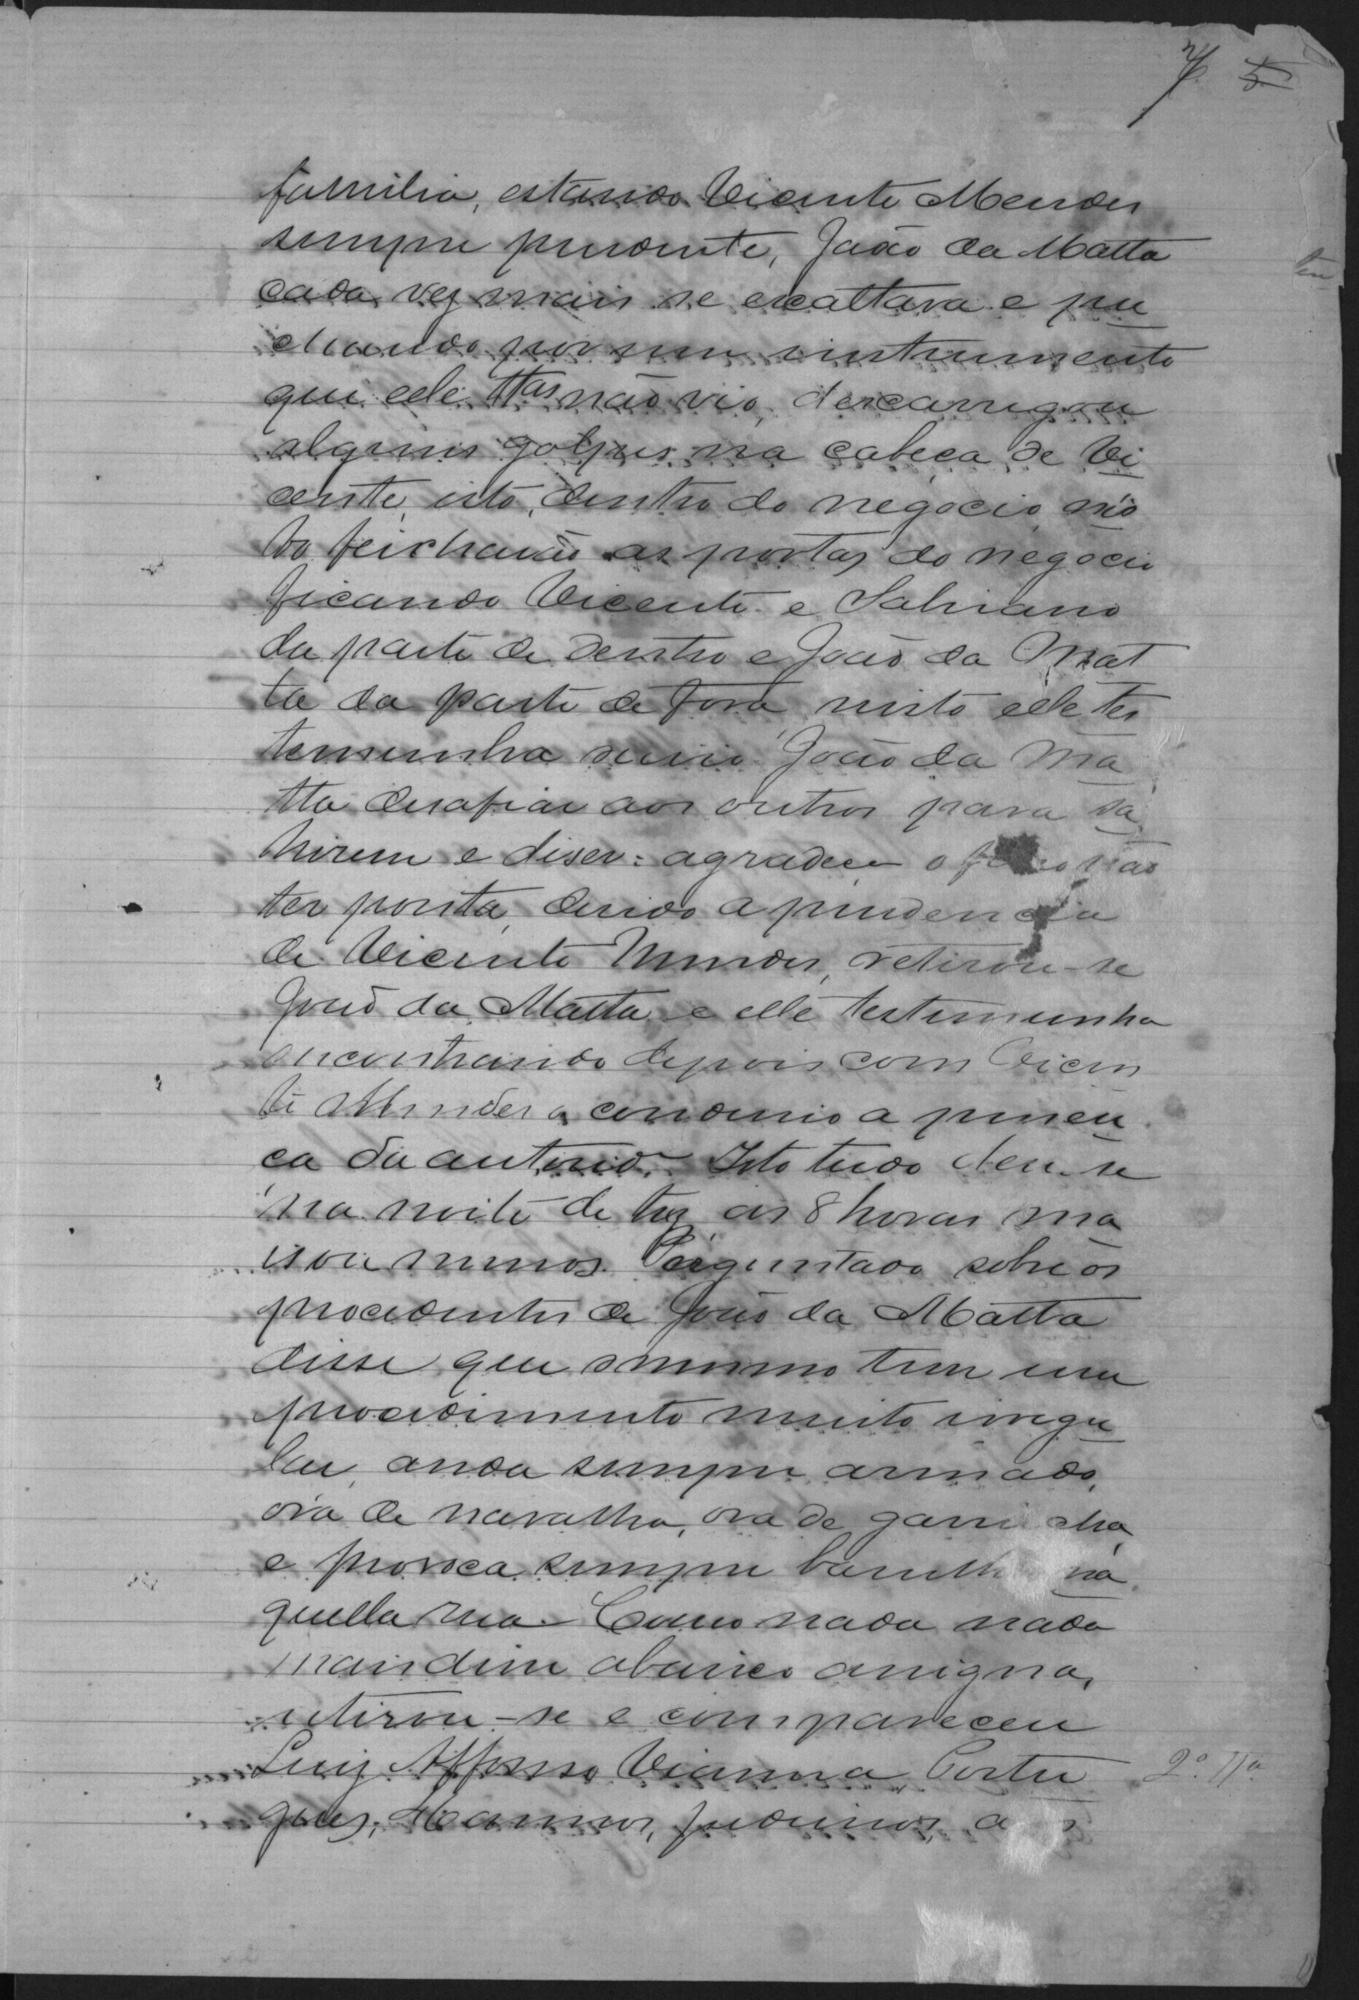 7 5
familia, estando Vicente Mendes
sempre prudente, João da Matta
cada vez mais se exaltava e pu
chando por um instrumento
que elle ttas não vio, descarregou
alguns golpes na cabeça de Vi
cente, isto, dentro do negocio, nis
to feicharão as portas do negocio
ficando Vicente e Salviano
da parte de dentro e João da Mat
ta da parte de fora, nisto elle tes
temunha ouvio João da Ma
tta desafiar aos outros para sa
hirem e diser: agradeça o não
ter ponta, devido a prudencia
de Vicente Mendes, retirou-se
João da Matta e elle testemunha
encontrando depois com Vicen
te Mendes o condusio a presen
ça da autorid.e Isto tudo deu-se
na noite de trez as 8 horas ma
is ou menos. Perguntado sobre os
procedentes de João da Matta
disse que o mesmo tem um
procedimento muito irregu
lar, anda sempre armado,
ora de navalha, ora de garrucha,
e provoca sempre barulho na
quella rua. Como nada nada
mais disse abaixo assigna,
retirou-se e compareceu
Luiz Affonso Vianna, Portu 2ª Ttª
guez,